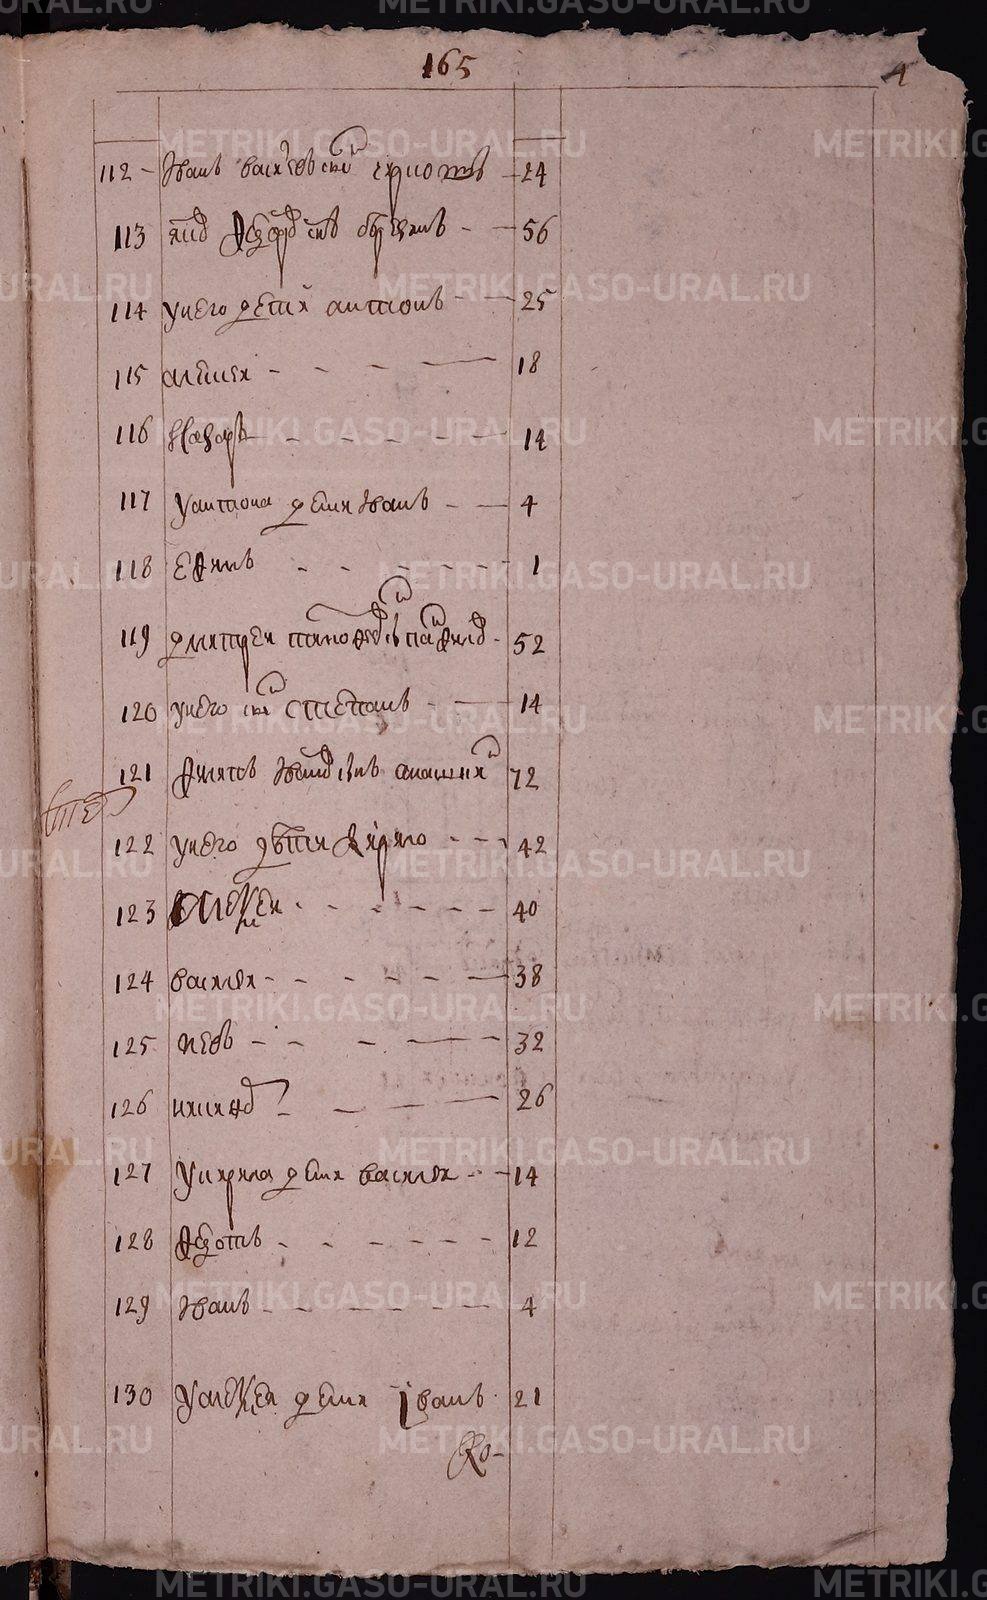 165
4
112 - Иванъ Василевъ снъ 24
113 Федоровъ снъ 56
114 у него дети антонъ 25
115 алексеи 18
116 Назаръ 14
117 у антона дети Иванъ 4
118 ефимъ 1
119 дмитреи 52
120 у него снъ степанъ 14
121 Иванов снъ 72
122 у него дети кирило 42
123 алексеи 40
124 василеи 38
125 левъ 32
126 никифор 26
127 у кирила дети василеи 14
128 федотъ 12
129 Иванъ 4
130 у алексея дети Iванъ 21
Ко-
METRIKI.GASO-URAL.RU